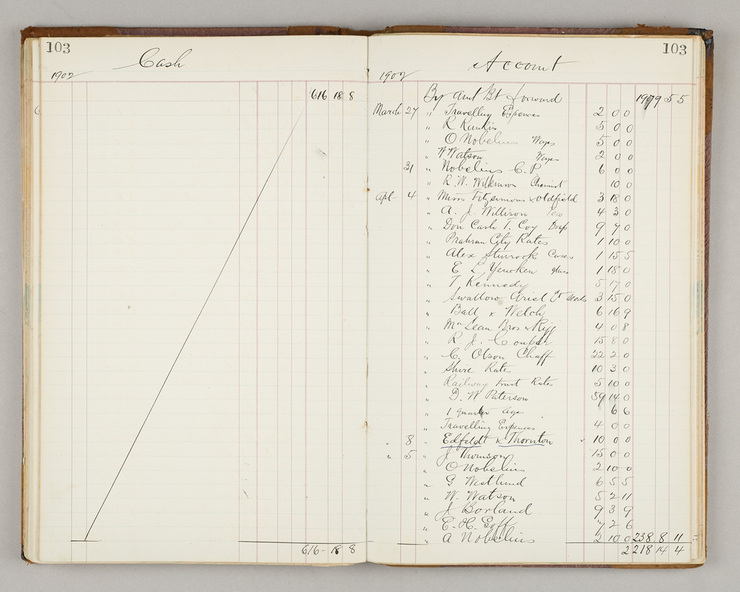 103
Cash
1902
616 18 8
616 - 18 8
103
Account
1902
By Amt Bt Forward 1979 5 5
March 27 " Travelling Expenses 2 0 0
" R Rankin 5 0 0
" O Nobelius Wages 5 0 0
W Watson Wages 2 0 0
31 " Nobelius C. P. 6 0 0
" R. W. Wilkinson Chemist 10 0
Apl 4 " Messrs Fitzsimons & Oldfield 3 18 0
" A. J. Willison 4 3 0
" Don Cash T. Coy 9 9 0
" Prahran City Rates 1 10 0
" Alex Sturrock Cases 1 15 5
" E L Yencken glass 1 18 0
" T, Kennedy 5 17 0
" Swallow Ariel 3 15 0
" Ball & Welch 6 16 9
" McLean Bros & Rigg 4 0 8
" R J. Coupar 15 8 0
" C, Olson Chaff 22 2 0
" Shire Rates 10 3 0
" Railway Trust Rates 5 10 0
" D. W Paterson 59 14 0
" 1 quarter Age 6 6
" Travelling Expenses 4 0 0
" 8 " Edfeldt & Thornton 10 0 0
" 5 " J Thomson 15 0 0
" O Nobelius 2 10 0
" G Westlund 6 5 5
" W. Watson 5 2 11
" J Borland 9 3 9
" E. H. Goff 7 2 6
" A Nobelius 2 10 0 238 8 11
2218 14 4